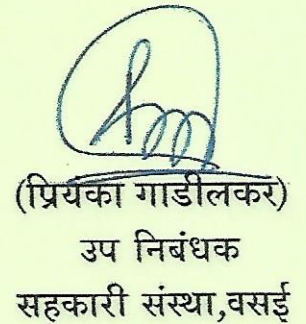 (प्रियंका गाडीलकर)
उप निबंधक
सहकारी संस्था,वसई